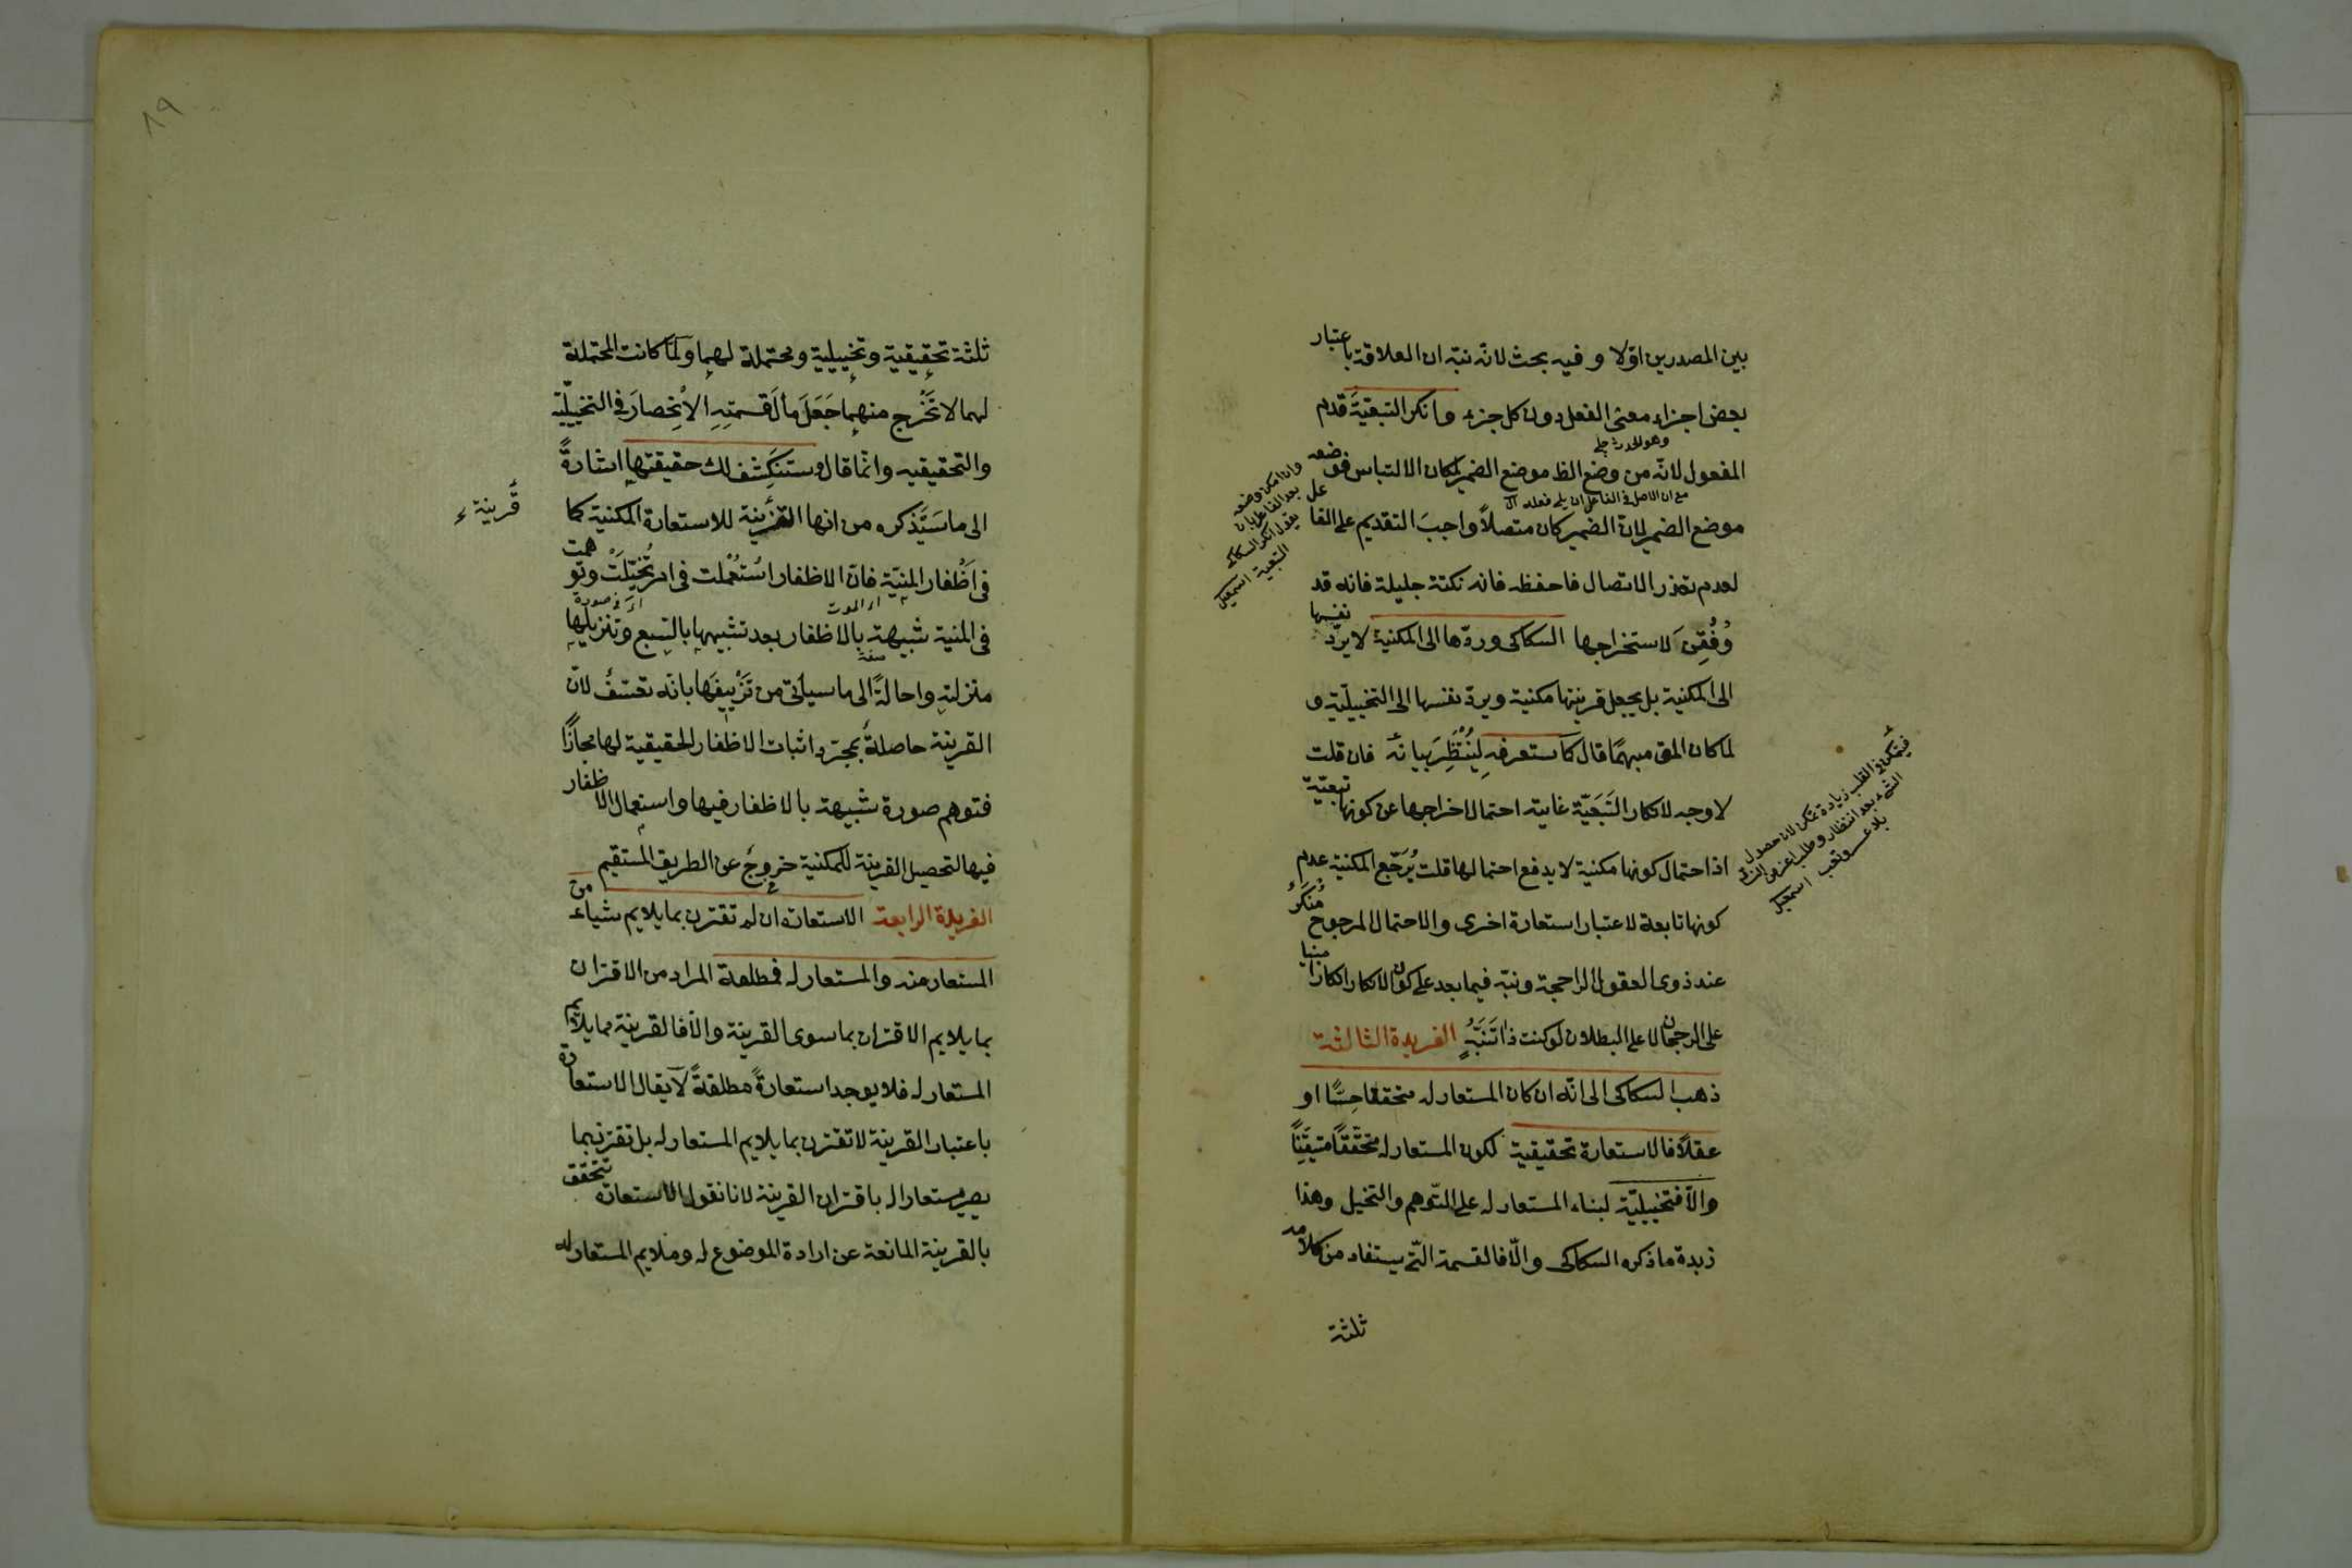 بين المصدرين اوّلا وفيه بحث لانّه نبّه ان العلاقة باعتبار
بعض اجزاء معنى الفعل دون كل جزء وانكر التبعيّة قدم
وهو الحدث
المفعول لانّه من وضع الظ موضع الضمير لمكان الالتباس فوضعه
مع ان الاصل فى الفاعل ان يلى فعله
موضع الضمير لانّ الضمير كان متصلاً واجبَ التقديم على الفاعل
لعدم تعذر الاتصال فاحفظه فانه نكتة جليلة فانه قد
وُفِّقنَ لاستخراجها السكاكى وردّها الى المكنية لا يردّ نفسها
الى المكنية بل يجعل قرينتها مكنية ويردّ نفسها الى التخييليّة و
لما كان المق مبهمًا قال كما ستعرفه لِيُنْتَظَرَ بيانه فان قلت
لا وجه لانكار التَبَعَيّة غايته احتمال اخراجها عن كونها تبعيّة
اذ احتمال كونها مكنية لا يدفع احتمالها قلت يُرَجِّع المكنية عدم
كونها تابعة لاعتبار استعارة اخرى والاحتمال المرجوح مُنكَرٌ
عند ذوى العقول الراجحة ونبّه فيما بعد على كون الانكار انكارا مبنيا
على الرجحان لا على البطلان لو كنت ذا تَنَبُّهٍ الفريدة الثالثة
ذهب السكاكى الى انّه ان كان المستعار له متحققا حِسًّا او
عقلاً فالاستعارة تحقيقية لكون المستعار له متحَقِّقًا متيقّنًا
والّا فتخييليّة لبناء المستعار له على التوهم والتخيل وهذا
زبدة ما ذكره السكاكى والّا فالقسمة الّتى يستفاد من كلامه
ثلثة
وان امكن وضعه
بعد الفاعل بان
يقول انكر السكاكى
التبعية اسمعيل
فيتمكن فى القلب زيادة تمكن لان حصول
الشئ بعد انتظار وطلب اعز من
بلا تعب اسمعيل
٨٩
ثلثة تحقيقية وتخييلية ومحتملة لهما ولمّا كانت المحتملة
لهما لا تَخْرج منهما جَعَلَ مآلَ قسمتِهِ الاِنْحِصارَ فى التخييليّة
والتحقيقيه وانّما قال وستنكَشف لك حقيقتها اشارةً
الى ما سَيَذكره من انها القرينة للاستعارة المكنية كما
قرينة
فى اَظفار المنيّة فانّ الاظفار اسْتُعملت فى امر تُخُيِّلَتْ وتوهمت
اى الموت
اى فى صورة
فى المنية شبيهة بالاظفار بعد تشبيهها بالسبع وتنزيلها
منزلته واحالةً الى ما سيأتى من تَزْيِيفِها بانّه تعسّفٌ لانّ
القرينة حاصلةٌ بمجرّد اثبات الاظفار الحقيقية لها مجازًا
فتوهم صورة شبيهة بالاظفار فيها واستعمال الاظفار
فيها لتحصيل القرينة للمكنية خروجٌ عن الطريق المستقيم
الفريدة الرابعة الاستعارة ان لم تقترن بما يلايم شياء من
المستعار منه والمستعار له فمطلقة المراد من الاقتران
بما يلايم الاقتران بما سوى القرينة والّا فالقرينة مما يلايم
المستعار له فلا يوجد استعارةً مطلقةً لا يقال الاستعارة
باعتبار القرينة لا تقترن بما يلايم المستعار له بل تقترن بما
يصير مستعارا له باقتران القرينة لانا نقول الاستعارة تتحقق
بالقرينة المانعة عن ارادة الموضوع له وملايم المستعار له